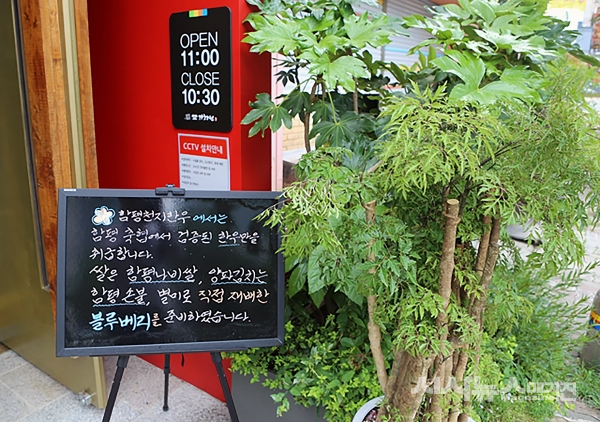 OPEN
11:00
CLOSE
10:30
CCTV 설치안내
함평천지한우 에서는
함평 축협에서 검증된 한우만을
취급합니다.
쌀은 함평나비쌀, 양파김치는
함평 손불, 별미로 직접 재배한
블루베리를 준비하였습니다.
Magazine